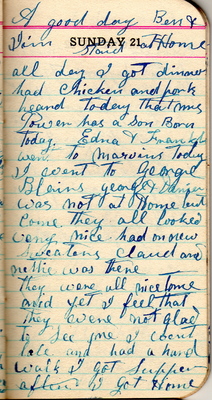 A good day Ben &
Jim Staid at Home
SUNDAY 21
all day I got dinner
had chicken and pork
heard today that mrs
Towen has a son Born
today. Edna & Frank
went to marvins today
I went to George
Blains george
was not at Home but
Come they all looked
very nice had on new
Sweaters Claud and
nettie was there
they were all nice tome
and yet I feel that
they were not glad
to see me I went
late and had a hard
walk I got Supper
after I got Home